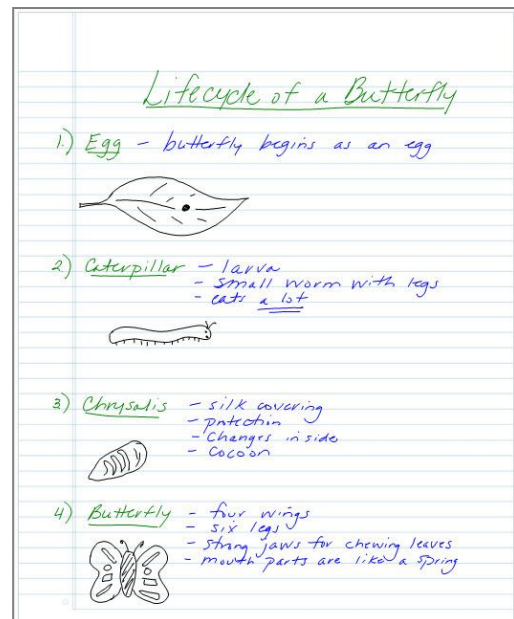 Lifecycle of a Butterfly
1.) Egg - butterfly begins as an egg
2) Caterpillar - larva
- small worm with legs
- eats a lot
3) Chrysalis - silk covering
- protection
- changes inside
- cocoon
4) Butterfly - four wings
- six legs
- strong jaws for chewing leaves
- mouth parts are like a spring